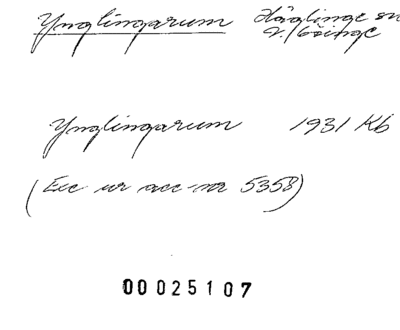 Ynglingarum Häglinge sn
V. Göinge
Ynglingarum 1931 Kb
(Exc ur acc-nr 5358)
00025107